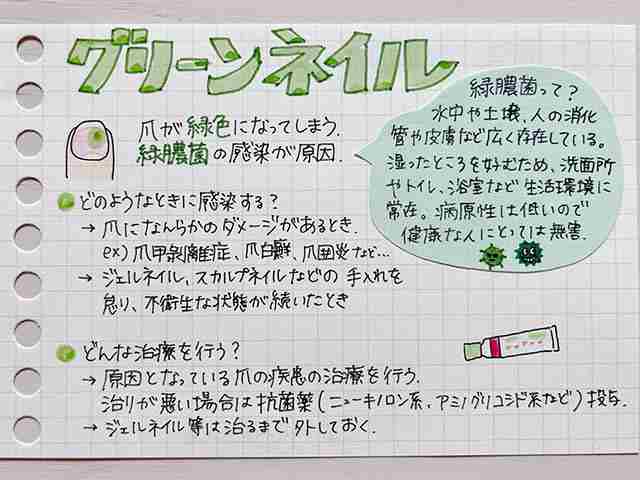 グリーンネイル
爪が緑色になってしまう.
緑膿菌の感染が原因.
緑膿菌って?
水中や土壌、人の消化
管や皮膚など広く存在している。
湿ったところを好むため、洗面所
やトイレ、浴室など生活環境に
常在。病原性は低いので
健康な人にとっては無害.
どのようなときに感染する?
→ 爪になんらかのダメージがあるとき.
ex) 爪甲剥離症、爪白癬、爪囲炎など…
→ ジェルネイル、スカルプネイルなどの 手入れを
怠り、不衛生な状態が続いたとき
どんな治療を行う?
→ 原因となっている爪の疾患の治療を行う.
治りが悪い場合は抗菌薬(ニューキノロン系、アミノグリコシド系など)投与.
→ ジェルネイル等は治るまで外しておく.